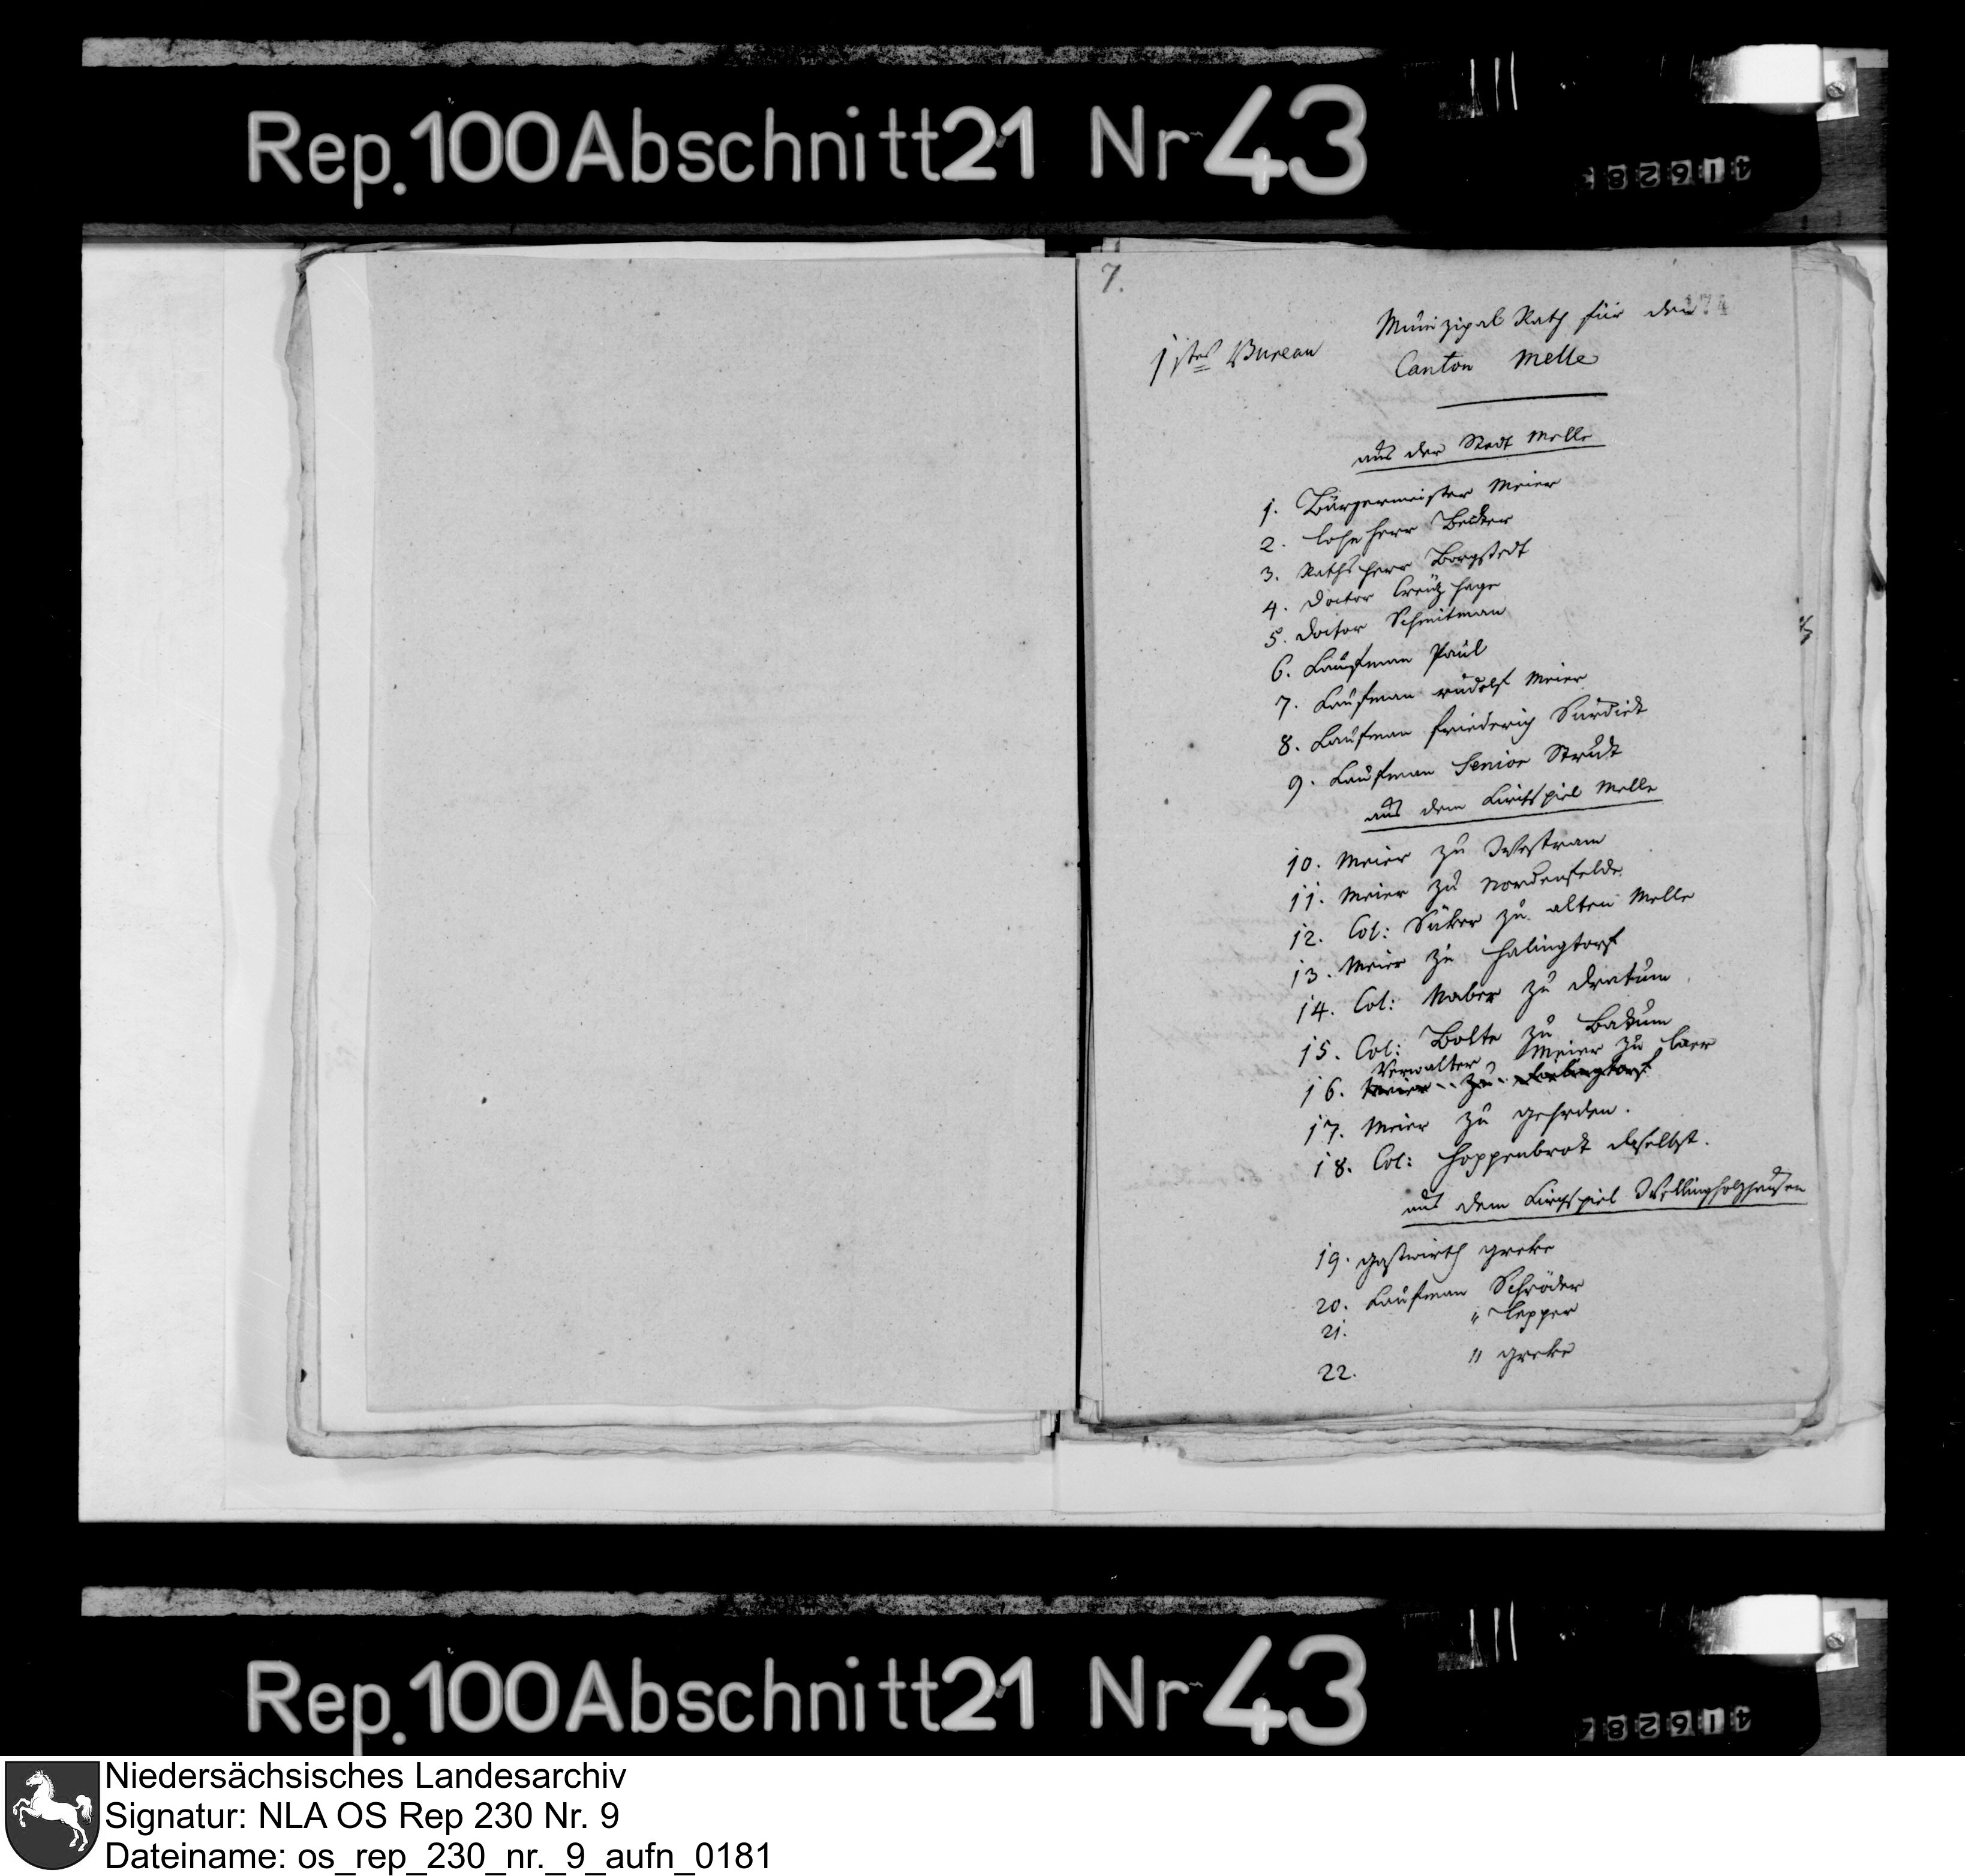 Rep. 100 Abschnitt 21 Nr 43
7.
174
Munizipal Rath für den
1stes Bureau
Canton Melle
aus der Stadt Melle
1. Bürgermeister Meier
2. Lohnherr Becker
3. Rathsherr Borgstedt
4. Doctor Creutzhage
5. Doctor Schmitman
6. Kaufman Paul
7. Kaufman rudolf Meier
8. Kaufman friederich Surdiek
9. Kaufman Senior Struck
aus dem Kirchspiel Melle
10. Meier zu Westram
11. Meier zu Nordenfelde
12. Col: Süker zu alten Melle
13. Meier zu Halingtorf
14. Col: Naber zu Dratum
15. Col: Bolte zu Bakum
Verwalter Meier zu Laer
16. Meier zu
17. Meier zu gehrden.
18. Col: Hoppenbrok daselbst.
aus dem Kirchspiel Wellingholzhausen
19. gastwirth greke
20. Kaufman Schröder
21. " Lepper
22. " greke
Rep. 100 Abschnitt 21 Nr 43
Niedersächsisches Landesarchiv
Signatur: NLA OS Rep 230 Nr. 9
Dateiname: os_rep_230_nr._9_aufn_0181